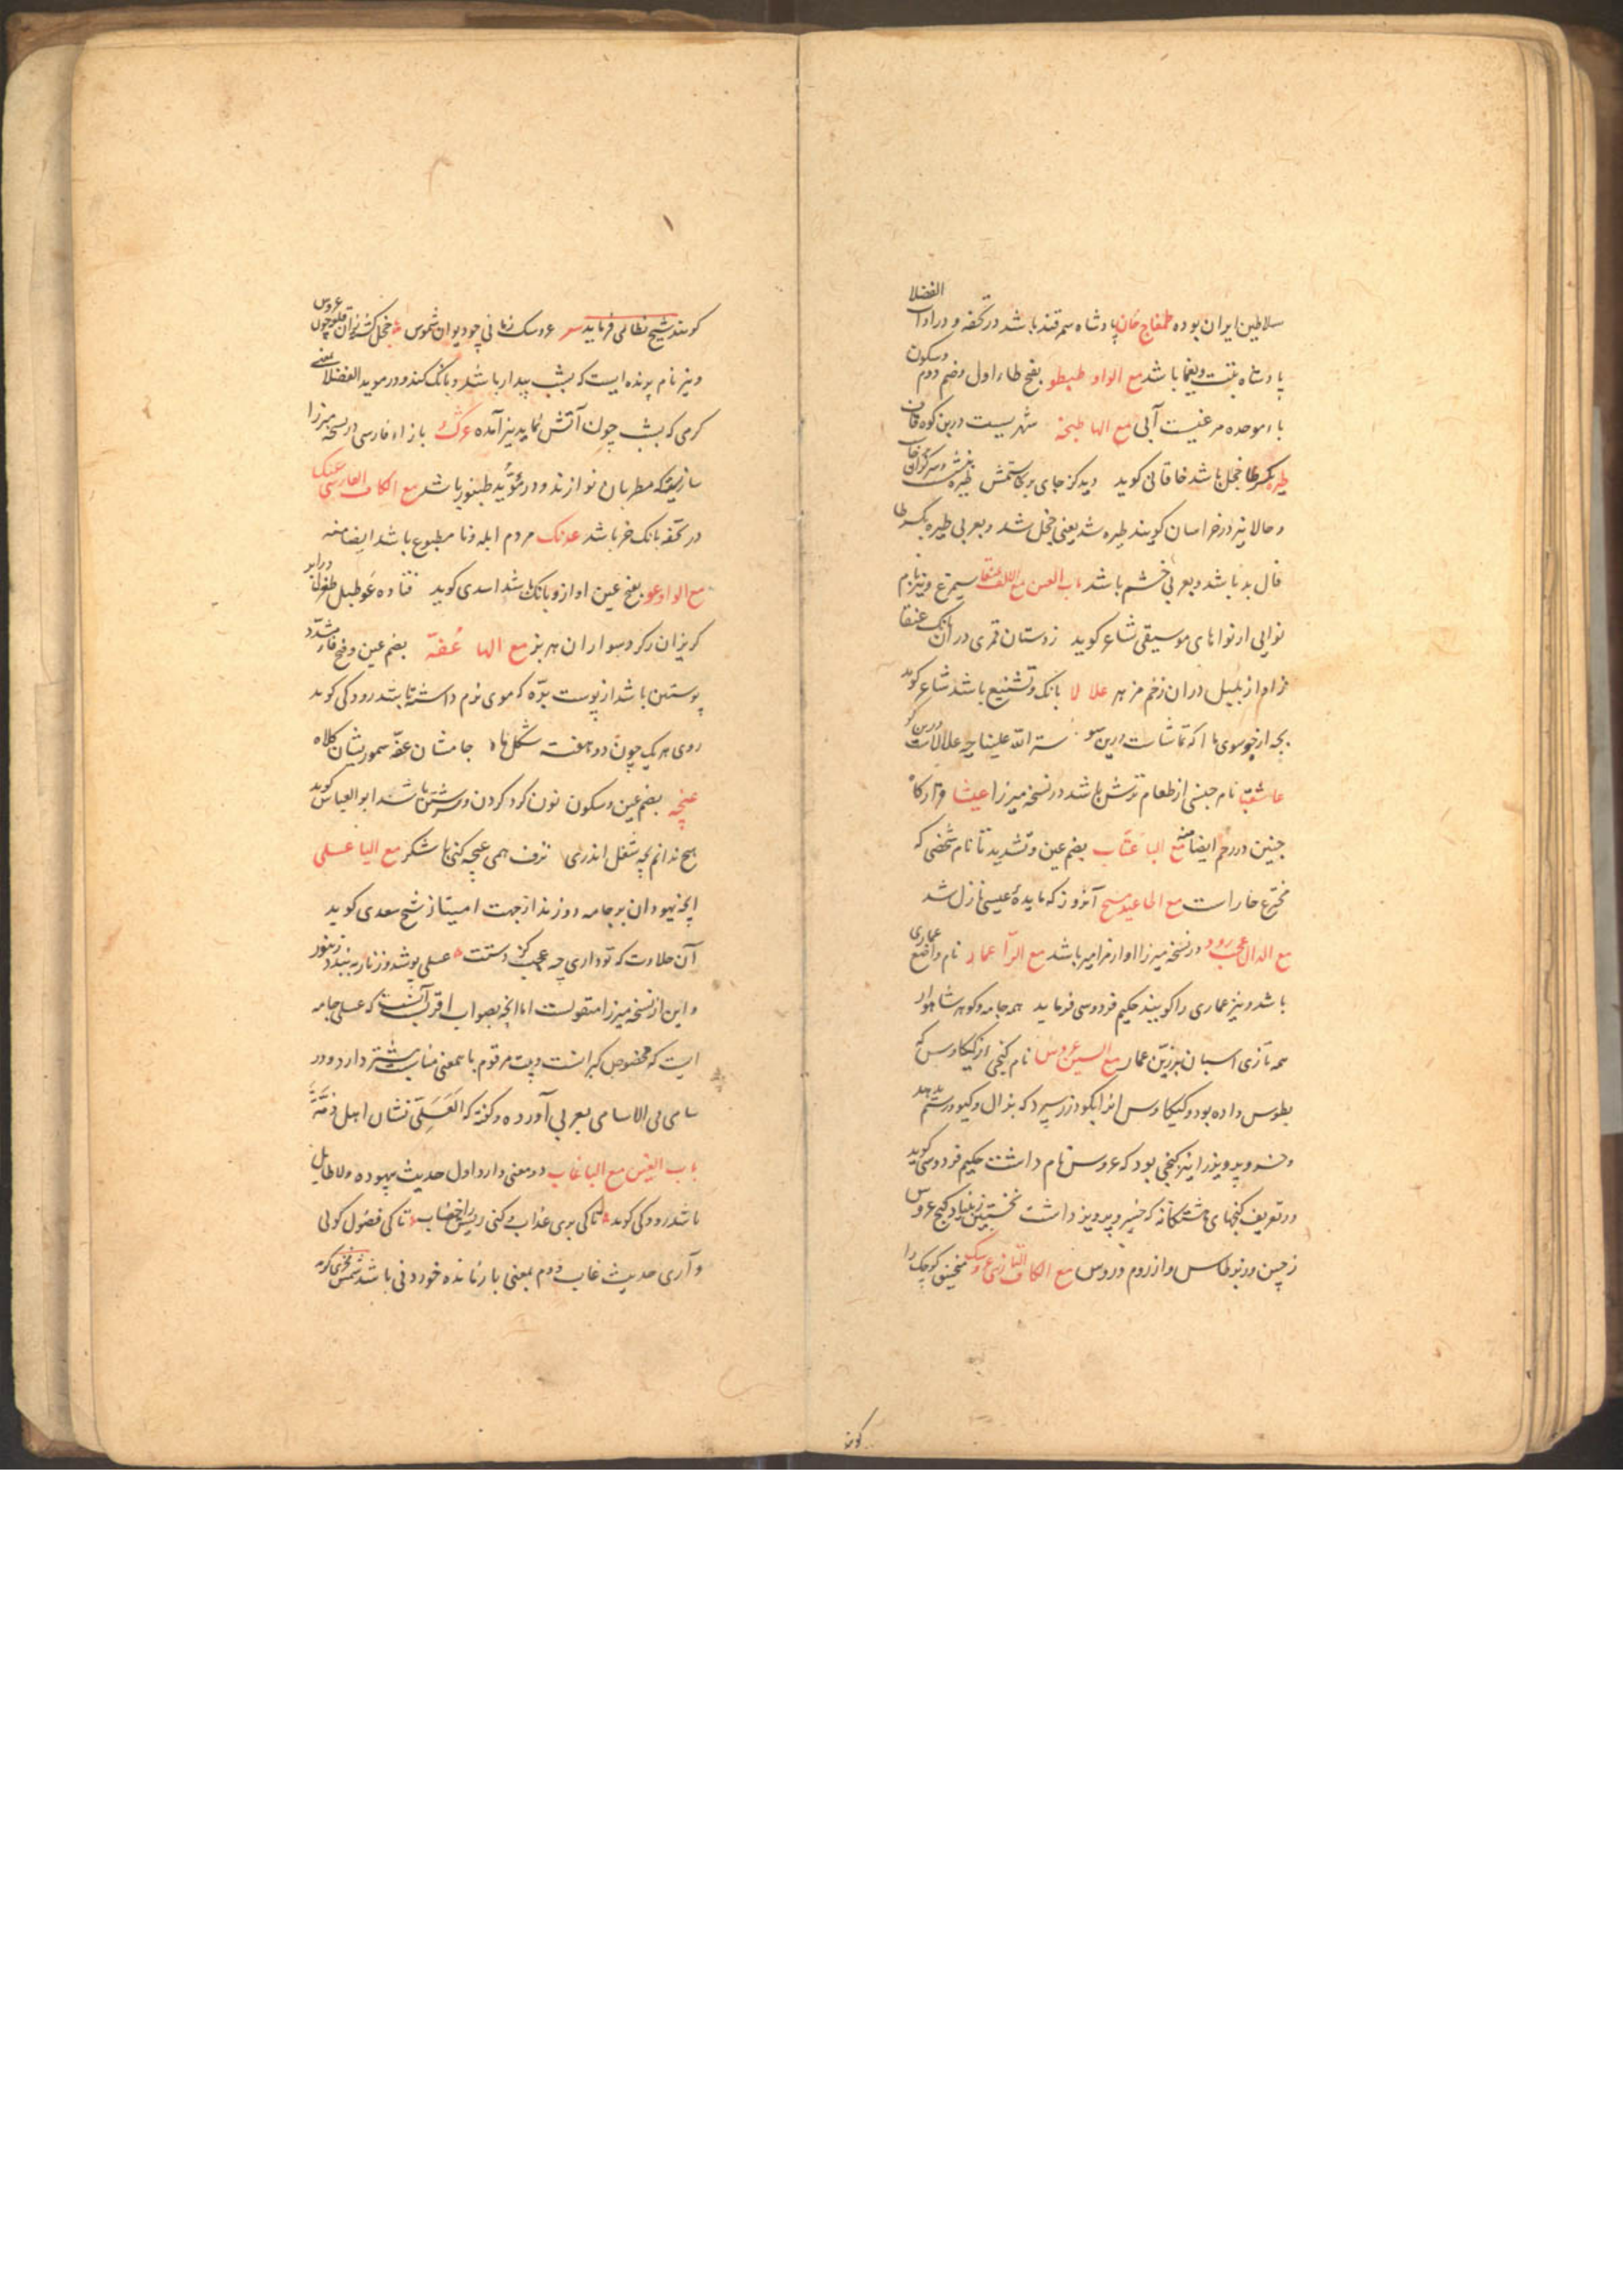 سلاطین ایران بوده طمغاج خان پادشاه سمرقند باشد در تحفه و در ادات الفضلا
پادشاه تبت و یغما باشد مع الواو طبطو بفتح طاء اول و ضم دوم و سکون
باء موحده مرغیست آبی مع الها طبخه شهریست درین کوه قاف
طیره بکسر طا خجل باشد خاقانی گوید دیدکز جای برنخاستمش طیره بنشست و سر گران برخاست
و حالا نیز در خراسان گویند طیره شد یعنی خجل شد و بعربی طیره بکسر طا
فال بد باشد و بعربی خشم باشد باب العین مع الالف عنقا سیمرغ و نیز نام
نوایی از نواهای موسیقی شاعر گوید ز دستان قمری در آن بانک عنقا
ز آواز بلبل در آن زخم مزهر علا لا بانک و تشنیع باشد شاعر گوید
سترالله علینا چه علالاست درین کو
عاشقبا نام جنسی از طعام ترش باشد در نسخه میرزا عیشا
جنین در رحم ایضا منه مع البا عتاب بضم عین و تشدید تا نام شخصی که
مخترع خاراست مع الحا عید مسیح آنروز که مایدهٔ عیسی نازل شد
مع الدال عجب رود در نسخه میرزا اواز مزامیر باشد مع الرآ عمار نام واضع عماری
باشد و نیز عماری را گویند حکیم فردوسی فرماید همه جامه و گوهر شاهوار
همه تازی اسبان بزرین عمار مع السین عروس نام گنجی از کیکاوس که
بطوس داده بود و کیکاوس انرا بگودرز سپرد که بزال و گیو و رستم بدهد
و خسرو پرویز را نیز گنجی بود که عروس نام داشت حکیم فردوسی گوید
در تعریف گنجهای هشتگانه که خسرو پرویز داشت نخستین که بنهاد گنج عروس
ز چین و ز برطاس و از روم و روس مع الکاف التازی عروسک منجنیق کوچک را
گویند
گویند شیخ نظامی فرماید عروسک زنانی چو دیوان شموس خجل گشته زان قلعه چون عروس
و نیز نام پرنده ایست که بشب بیدار باشد و بانک کند و در موید الفضلا یعنی
کرمی که بشب چون آتش نماید نیز آمده عژک بازاء فارسی در نسخه میرزا
سازیست که مطربان نوازند و در مؤید طنبور باشد مع الکاف الفارسی عنگ
در تحفه بانک خر باشد عدنک مردم ابله و نا مطبوع باشد ایضا منه
مع الواو عو بفتح عین اواز و بانک باشد اسدی گوید فتاده عو طبل طغرل در ابر
گریزان ز گرد سواران هزبر مع الها عُفّه بضم عین و فتح فاء مشدّد
پوستین باشد از پوست برّه که موی نرم داشته باشد رودکی گوید
روی هر یک چون دو هفته شکل ماه جامشان عفّه سمور بشان کلاه
عنچه بضم عین و سکون نون گرد کردن و سرشتن باشد ابو العباس گوید
هیچ ندانم بچه شغل اندری ترف همی عنچه کنی با شکر مع الیا عسلی
انچه یهودان بر جامه دوزند از جهت امتیاز شیخ سعدی گوید
آن حلاوت که تو داری چه عجب کز دستت عسلی پوشد و زنار ببندد زنبور
و این از نسخه میرزا منقولست اما انچه بصواب اقربست آنست که عسلی جامه
ایست که مخصوص گبرانست و بیت مرقوم با معنی مناسبت بیشتر دارد و در
سامی فی الاسامی بعربی آورده و گفته که العَسَلِیّ نشان اهل ذمّة
باب الغین مع البا غاب دو معنی دارد اول حدیث بیهوده و لا طایل
باشد رودکی گوید تا کی بری عذاب و کنی ریش را خضاب تا کی فضول گوئی
و آری حدیث غاب دوم بمعنی بازمانده خوردنی باشد شمس فخری گوید